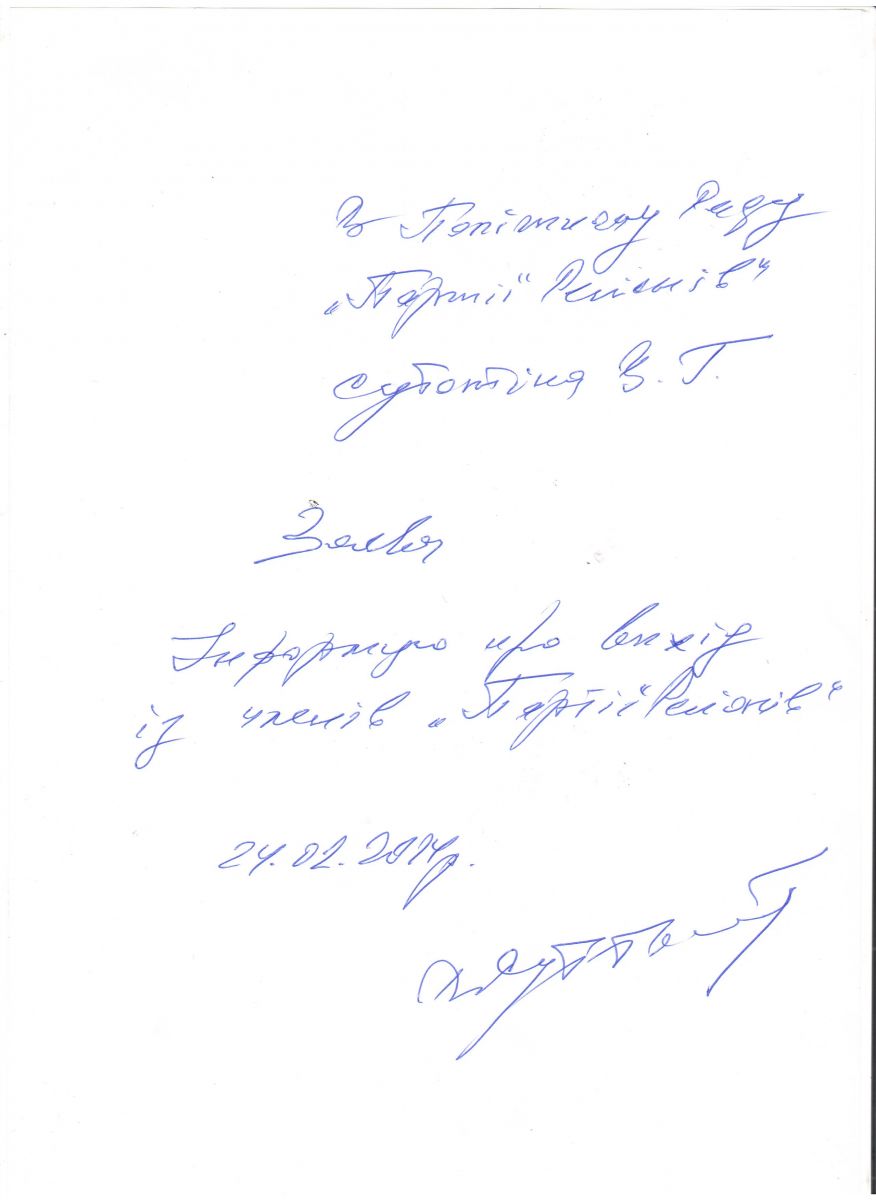 В Політичну Раду
„Партії" Регіонів"
Суботіна В. Г.
Заява
Інформую про вихід
із членів „Партії" Регіонів"
24.02.2014р.